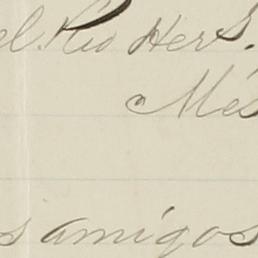 el Rio Hers.
Més
s amigos